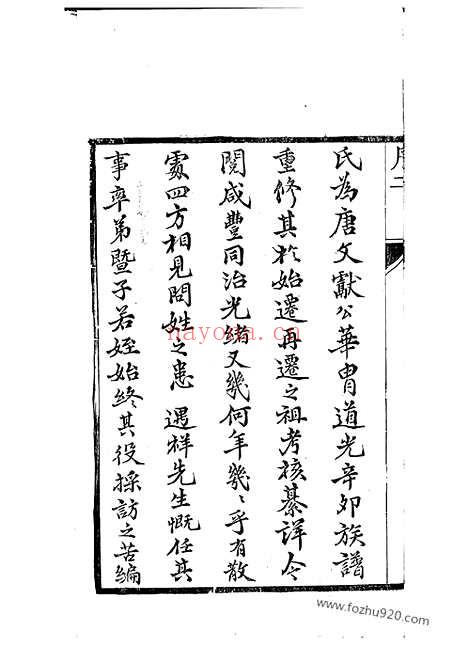 序二
氏為唐文獻公華胄道光辛卯族譜
重修其於始遷再遷之祖考核綦詳今
閱咸豐同治光緒又幾何年幾〻乎有散
處四方相見問姓之患 遇祥先生慨任其
事率弟暨子若姪始終其役採訪之苦編
hayona.cn
www.fozhu920.com